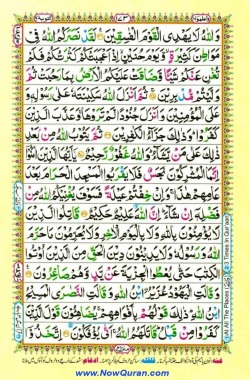 التوبة ٩
١٧٣
وَاللّٰهُ لَا يَهْدِى الْقَوْمَ الْفٰسِقِيْنَ لَقَدْ نَصَرَكُمُ اللّٰهُ فِىْ
مَوَاطِنَ كَثِيْرَةٍ وَّيَوْمَ حُنَيْنٍ اِذْ اَعْجَبَتْكُمْ كَثْرَتُكُمْ فَلَمْ
تُغْنِ عَنْكُمْ شَيْـًٔا وَّضَاقَتْ عَلَيْكُمُ الْاَرْضُ بِمَا رَحُبَتْ ثُمَّ
وَلَّيْتُمْ مُّدْبِرِيْنَ ثُمَّ اَنْزَلَ اللّٰهُ سَكِيْنَتَهٗ عَلٰى رَسُوْلِهٖ وَ
عَلَى الْمُؤْمِنِيْنَ وَاَنْزَلَ جُنُوْدًا لَّمْ تَرَوْهَا وَعَذَّبَ الَّذِيْنَ
كَفَرُوْا وَذٰلِكَ جَزَآءُ الْكٰفِرِيْنَ ثُمَّ يَتُوْبُ اللّٰهُ مِنْۢ بَعْدِ
ذٰلِكَ عَلٰى مَنْ يَّشَآءُ وَاللّٰهُ غَفُوْرٌ رَّحِيْمٌ يٰٓاَيُّهَا الَّذِيْنَ
اٰمَنُوْٓا اِنَّمَا الْمُشْرِكُوْنَ نَجَسٌ فَلَا يَقْرَبُوا الْمَسْجِدَ الْحَرَامَ بَعْدَ
عَامِهِمْ هٰذَا وَاِنْ خِفْتُمْ عَيْلَةً فَسَوْفَ يُغْنِيْكُمُ اللّٰهُ مِنْ
فَضْلِهٖٓ اِنْ شَآءَ اِنَّ اللّٰهَ عَلِيْمٌ حَكِيْمٌ قَاتِلُوا الَّذِيْنَ
لَا يُؤْمِنُوْنَ بِاللّٰهِ وَلَا بِالْيَوْمِ الْاٰخِرِ وَلَا يُحَرِّمُوْنَ مَا حَرَّمَ
اللّٰهُ وَرَسُوْلُهٗ وَلَا يَدِيْنُوْنَ دِيْنَ الْحَقِّ مِنَ الَّذِيْنَ اُوْتُوا
الْكِتٰبَ حَتّٰى يُعْطُوا الْجِزْيَةَ عَنْ يَّدٍ وَّهُمْ صٰغِرُوْنَ
وَقَالَتِ الْيَهُوْدُ عُزَيْرُ ۨابْنُ اللّٰهِ وَقَالَتِ النَّصٰرَى الْمَسِيْحُ
ابْنُ اللّٰهِ ذٰلِكَ قَوْلُهُمْ بِاَفْوَاهِهِمْ يُضَاهِـُٔوْنَ قَوْلَ الَّذِيْنَ
كَفَرُوْا مِنْ قَبْلُ قَاتَلَهُمُ اللّٰهُ اَنّٰى يُؤْفَكُوْنَ اِتَّخَذُوْٓا
www.NowQuran.com